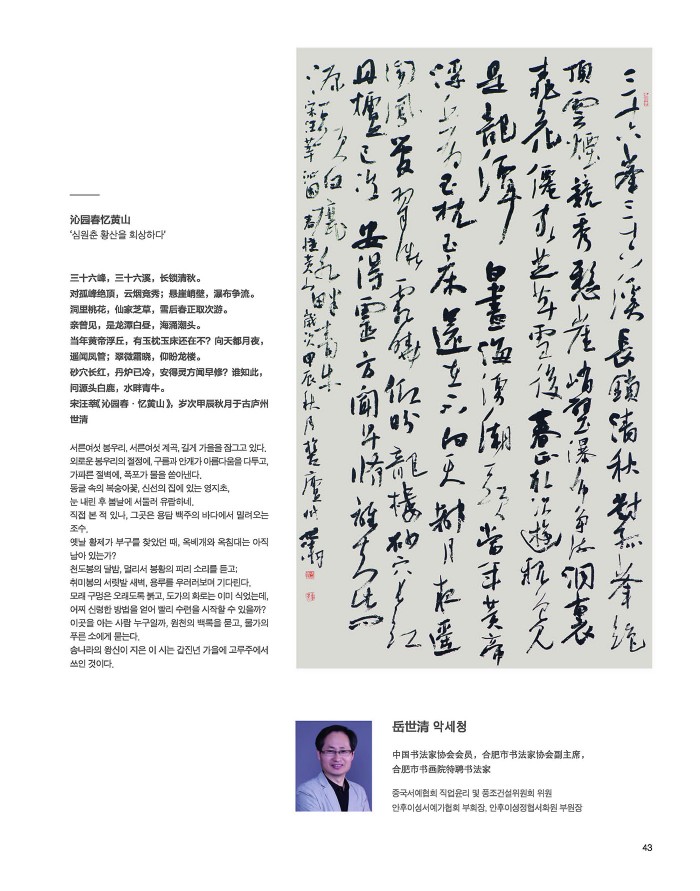 沁园春忆黄山
'심원춘 황산을 회상하다'
三十六峰，三十六溪，长锁清秋。
对孤峰绝顶，云烟竞秀；悬崖峭壁，瀑布争流。
洞里桃花，仙家芝草，雪后春正取次游。
亲曾见，是龙潭白昼，海涌潮头。
当年黄帝浮丘，有玉枕玉床还在不？向天都月夜，
遥闻凤管；翠微霜晓，仰盼龙楼。
砂穴长红，丹炉已冷，安得灵方闻早修？谁如此，
问源头白鹿，水畔青牛。
宋汪莘《沁园春·忆黄山》，岁次甲辰秋月于古庐州
世清
서른여섯 봉우리, 서른여섯 계곡, 길게 가을을 잠그고 있다.
외로운 봉우리의 절정에, 구름과 안개가 아름다움을 다투고,
가파른 절벽에, 폭포가 물을 쏟아낸다.
동굴 속의 복숭아꽃, 신선의 집에 있는 영지초,
눈 내린 후 봄날에 서둘러 유람하네,
직접 본 적 있나, 그곳은 용담 백주의 바다에서 밀려오는
조수,
옛날 황제가 부구를 찾았던 때, 옥베개와 옥침대는 아직
남아 있는가?
천도봉의 달밤, 멀리서 봉황의 피리 소리를 듣고;
취미봉의 서릿발 새벽, 용루를 우러러보며 기다린다.
모래 구멍은 오래도록 붉고, 도가의 화로는 이미 식었는데,
어찌 신령한 방법을 얻어 빨리 수련을 시작할 수 있을까?
이곳을 아는 사람 누구일까, 원천의 백록을 묻고, 물가의
푸른 소에게 묻는다.
송나라의 왕신이 지은 이 시는 갑진년 가을에 고루주에서
쓰인 것이다.
三十六峯三十六溪長鎖清秋對孤峯絶
頂雲煙競秀懸崖峭壁瀑布争流洞裏
桃花僊家芝草雪後春正取次遊親曾見
是龍潭白晝海湧潮頭當年黄帝
浮丘有玉枕玉床還在不向天都月夜遥
聞鳳管翠微霜曉仰盼龍樓砂穴長紅
丹爐已冷安得靈方聞早脩誰如此問
源頭白鹿水畔青牛
岳世清 악세청
中国书法家协会会员，合肥市书法家协会副主席，
合肥市书画院特聘书法家
중국서예협회 직업윤리 및 풍조건설위원회 위원
안후이성서예가협회 부회장, 안후이성정협서화원 부원장
43